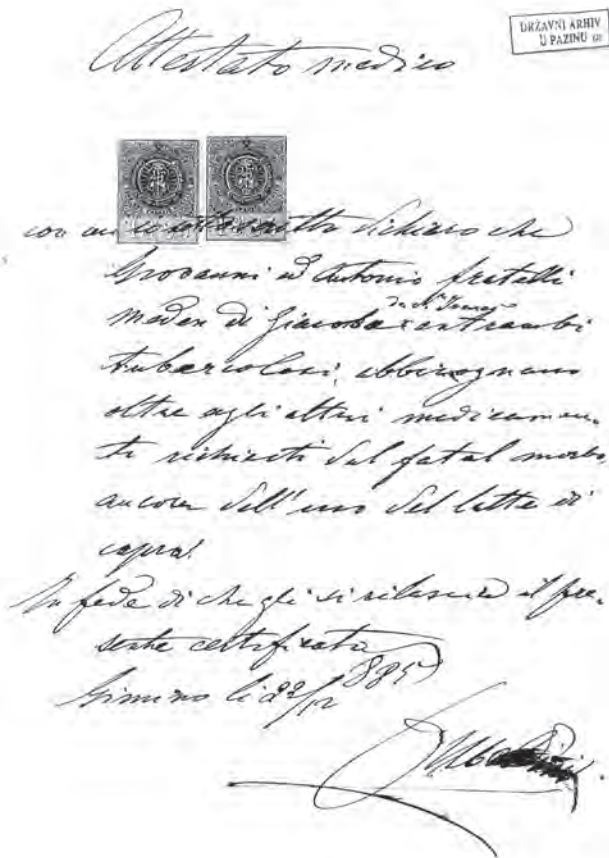 Attestato medico
DRŽAVNI ARHIV
U PAZINU
con cui io sottoscritto dichiaro che
Giovanni ed Antonio fratelli
Maden di Giacobbe entrambi
tubercolosi, abbisognano
oltre agli altri medicamen-
ti richiesti dal fatal morbo,
ancora dell'uso del latte di
capra!
In fede di che gli si rilascia il pre-
sente certificato
Gimino li 22/12 885